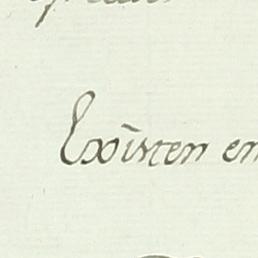 Existen en